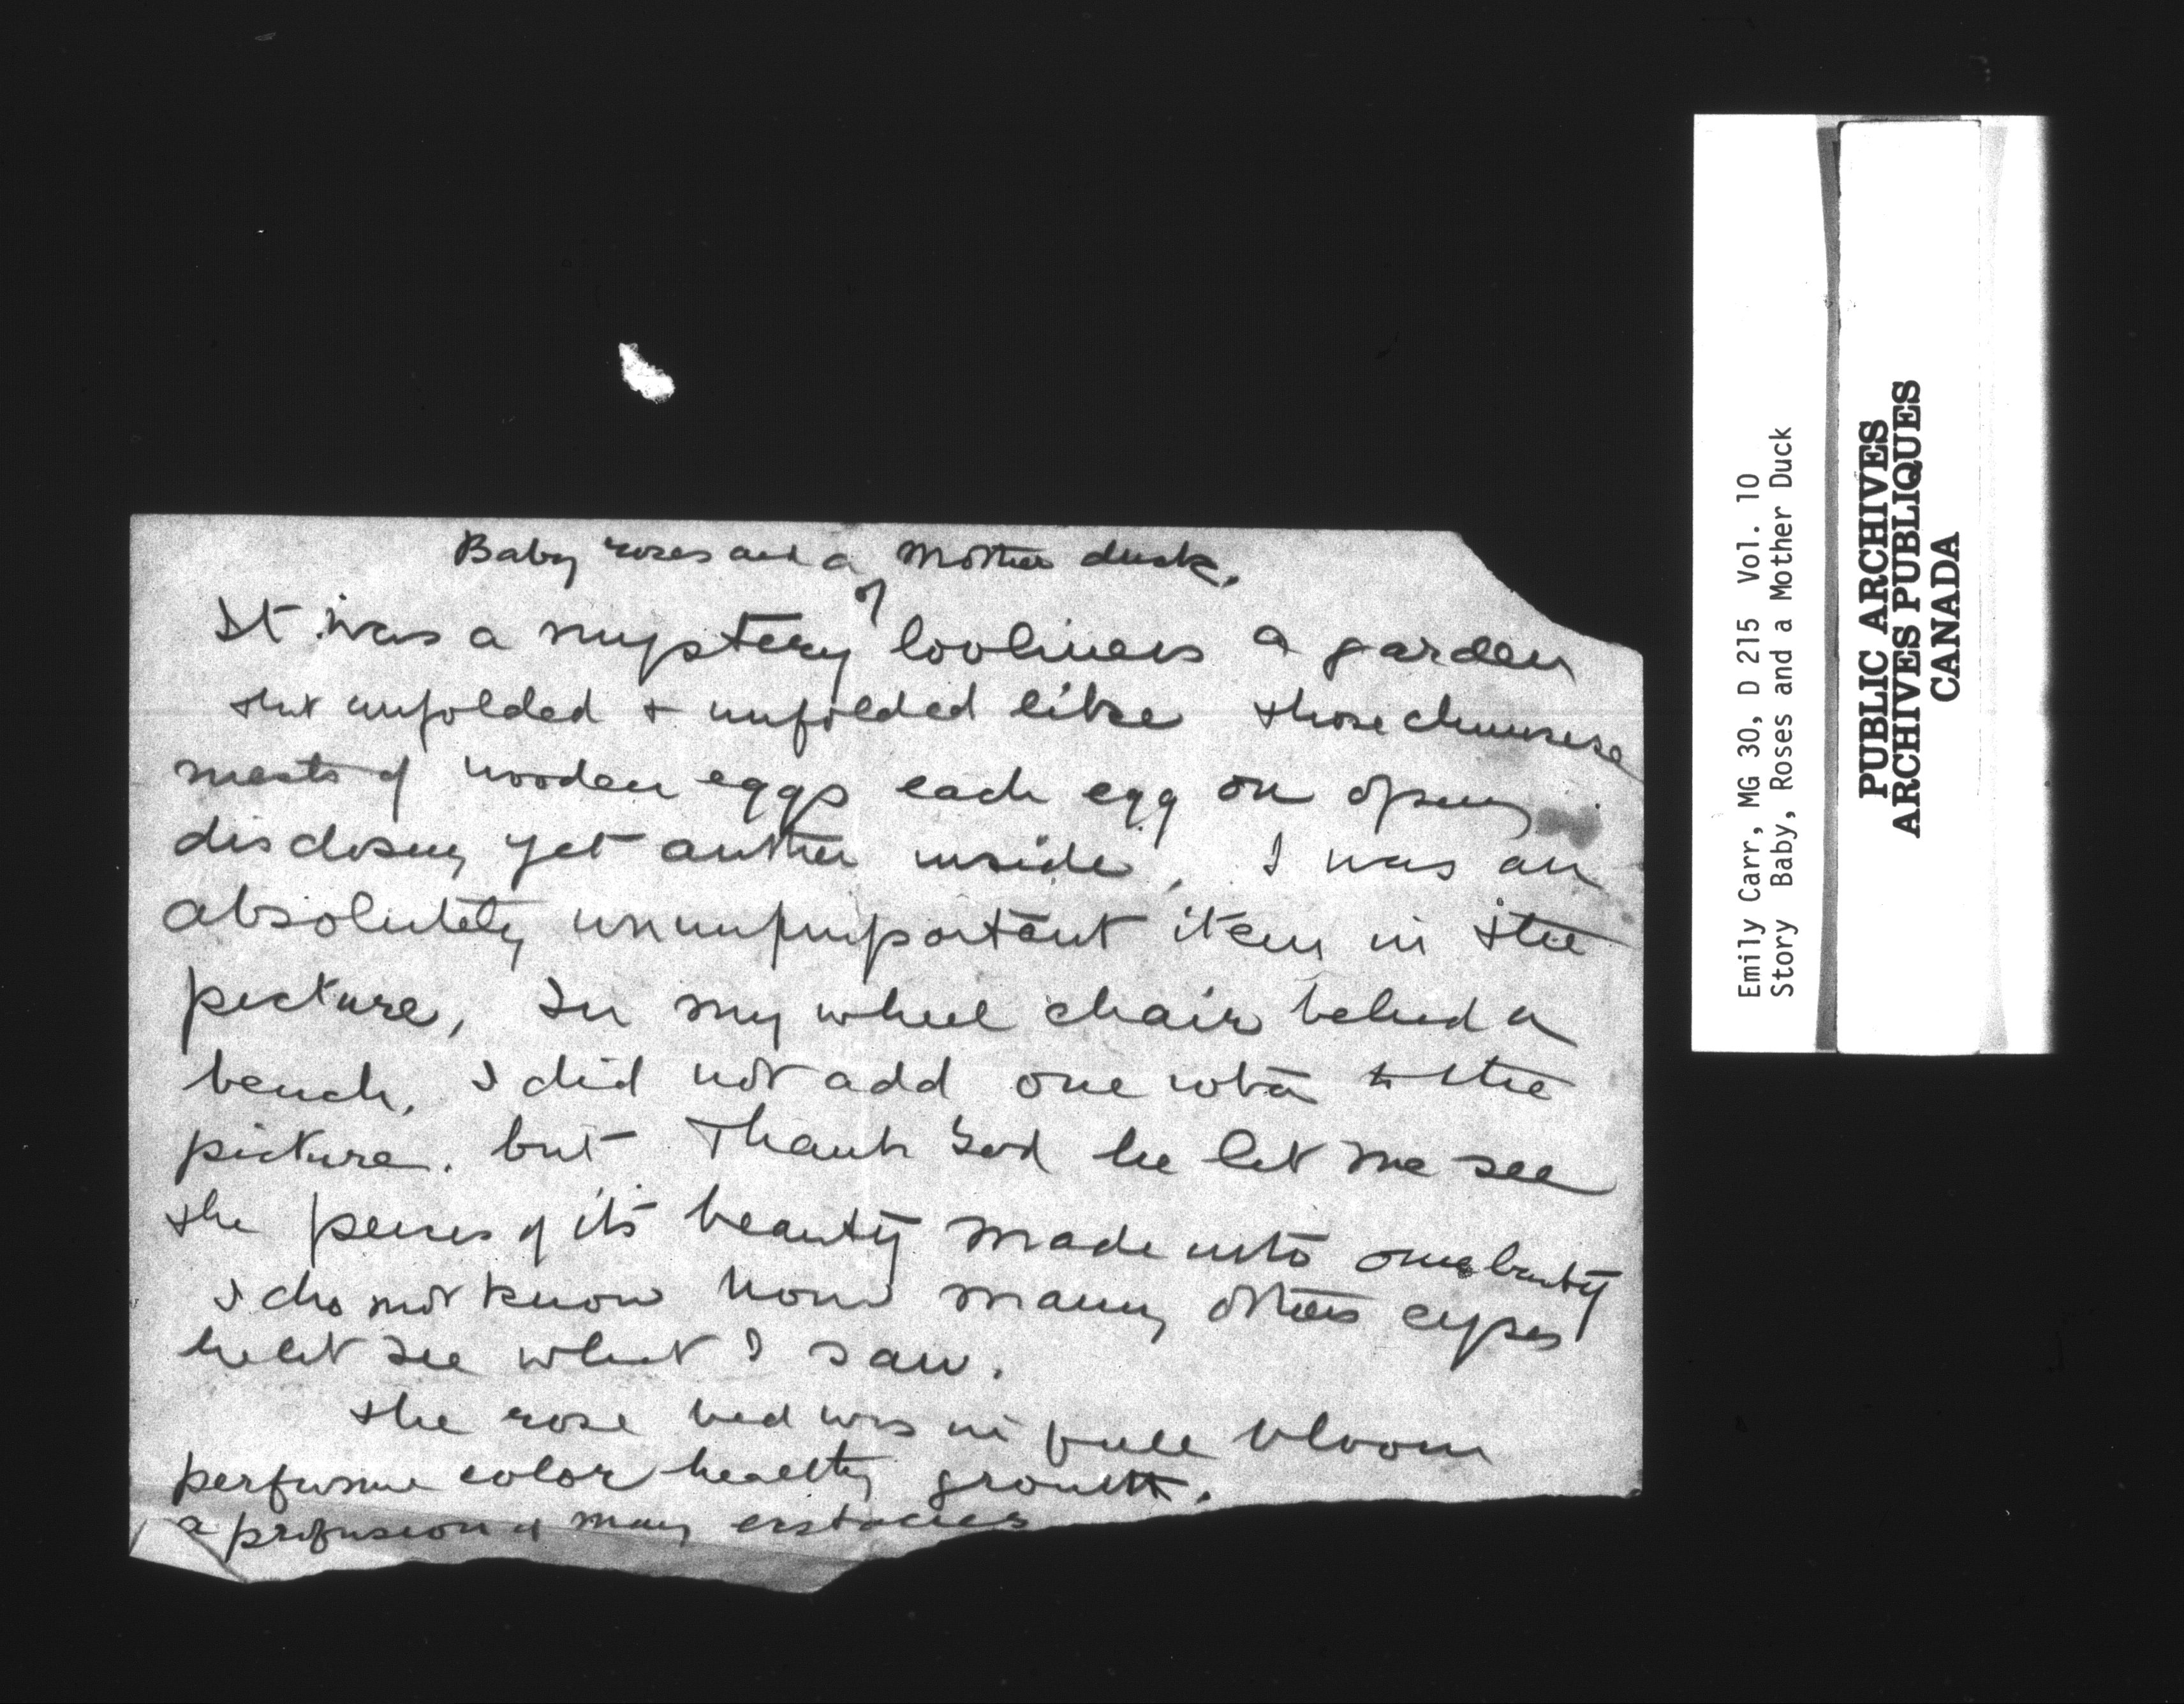 Baby roses and a Mother duck.
It was a mystery of looliness a garden
that unfolded & unfolded like those chinese
nests of wooden eggs each egg on opening
disclosing yet another inside, I was an
absolutely unimportant item in the
picture, In my wheel chair behind a
bench, I did not add one iota to the
picture. but Thank God he let me see
the peices of its beauty made into one beauty
I do not know how many others eyes
he let see what I saw.
The rose bed was in full bloom
perfume color healthy growth.
a profusion of many exstacies
Emily Carr, MG 30, D 215 Vol. 10
Story Baby, Roses and a Mother Duck
PUBLIC ARCHIVES
ARCHIVES PUBLIQUES
CANADA